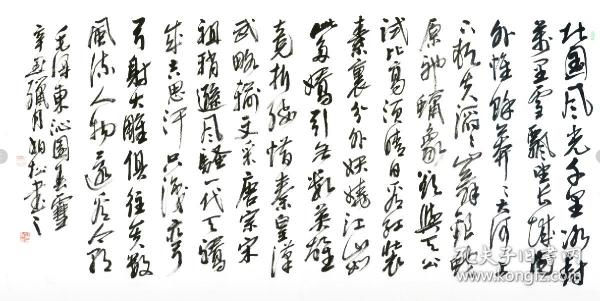 北國风光千里冰封
萬里雪飘望长城内
外惟餘莽莽大河上
下顿失滔滔山舞银蛇
原驰蜡象欲与天公
试比高须晴日看红装
素裹分外妖娆江山如
此多嬌引无数英雄
竞折腰惜秦皇漢
武略输文采唐宗宋
祖稍逊风骚一代天骄
成吉思汗只識弯
弓射大雕俱往矣数
風流人物還看今朝
毛泽东沁園春雪
月柏松书之
孔夫子旧书网
www.kongfz.com